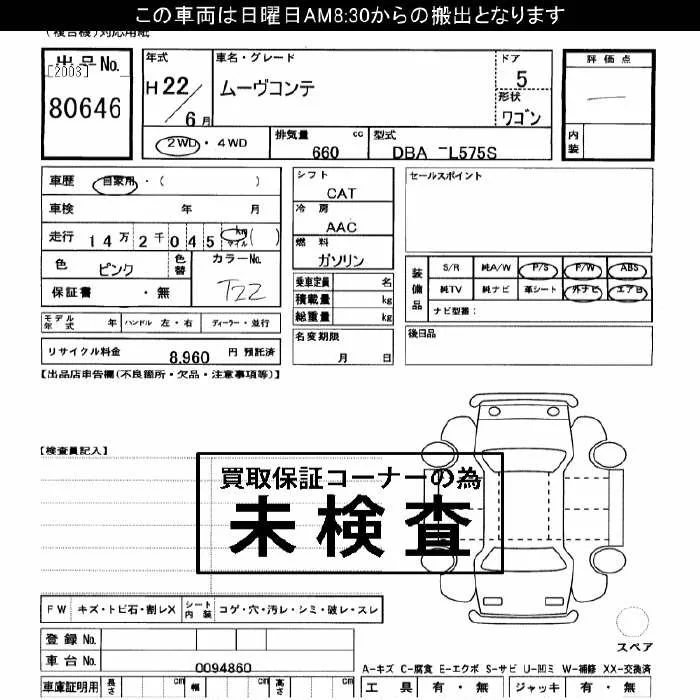 この車両は日曜日AM8:30からの搬出となります
(複合機)対応用紙
出品No.
[2003]
80646
年式
H22/6月
車名・グレード
ムーヴコンテ
ドア
5
形状
ワゴン
評価点
内装
2WD・4WD
排気量 660 cc
型式 DBA-L575S
車歴 自家用・( )
車検 年 月
走行 14万2千045 km マイル ( )
色 ピンク 色替
カラーNo. T22
保証書 ・無
シフト
CAT
冷房
AAC
燃料
ガソリン
乗車定員 名
積載量 kg
総重量 kg
セールスポイント
装備品
S/R 純A/W P/S P/W ABS
純TV 純ナビ 革シート 外ナビ エアB
ナビ型番:
モデル年式 年 ハンドル 左・右 ディーラー・並行
名変期限
月 日
後日品
リサイクル料金 8,960 円 預託済
【出品店申告欄(不良箇所・欠品・注意事項等)】
【検査員記入】
買取保証コーナーの為
未検査
FW キズ・トビ石・割レX シート内装 コゲ・穴・汚レ・シミ・破レ・スレ
登録No.
車台No. 0094860
スペア
A-キズ C-腐食 E-エクボ S-サビ U-凹ミ W-補修 XX-交換済
車庫証明用 長さ cm 幅 cm 高さ cm
工具 有・無 ジャッキ 有・無